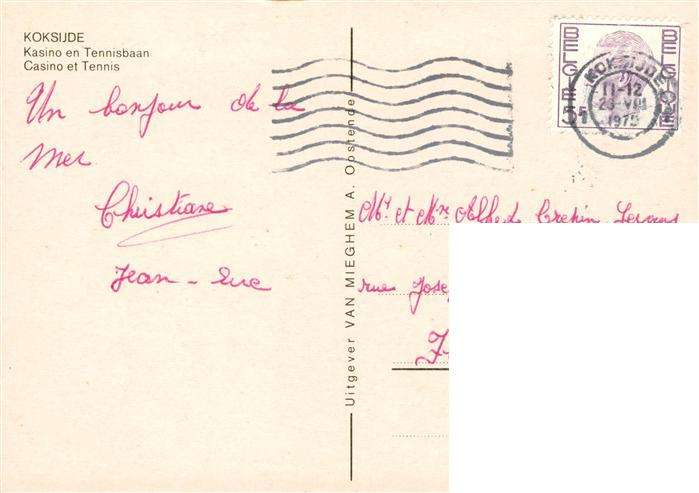 KOKSIJDE
Kasino en Tennisbaan
Casino et Tennis
Un bonjour de la
mer
Christiane
Jean-Luc
Uitgever VAN MIEGHEM A. Oostende
BELGIE
BELGIQUE
5F
KOKSIJDE
11-12
1975
Mr et Mme Alfred Crepin
rue